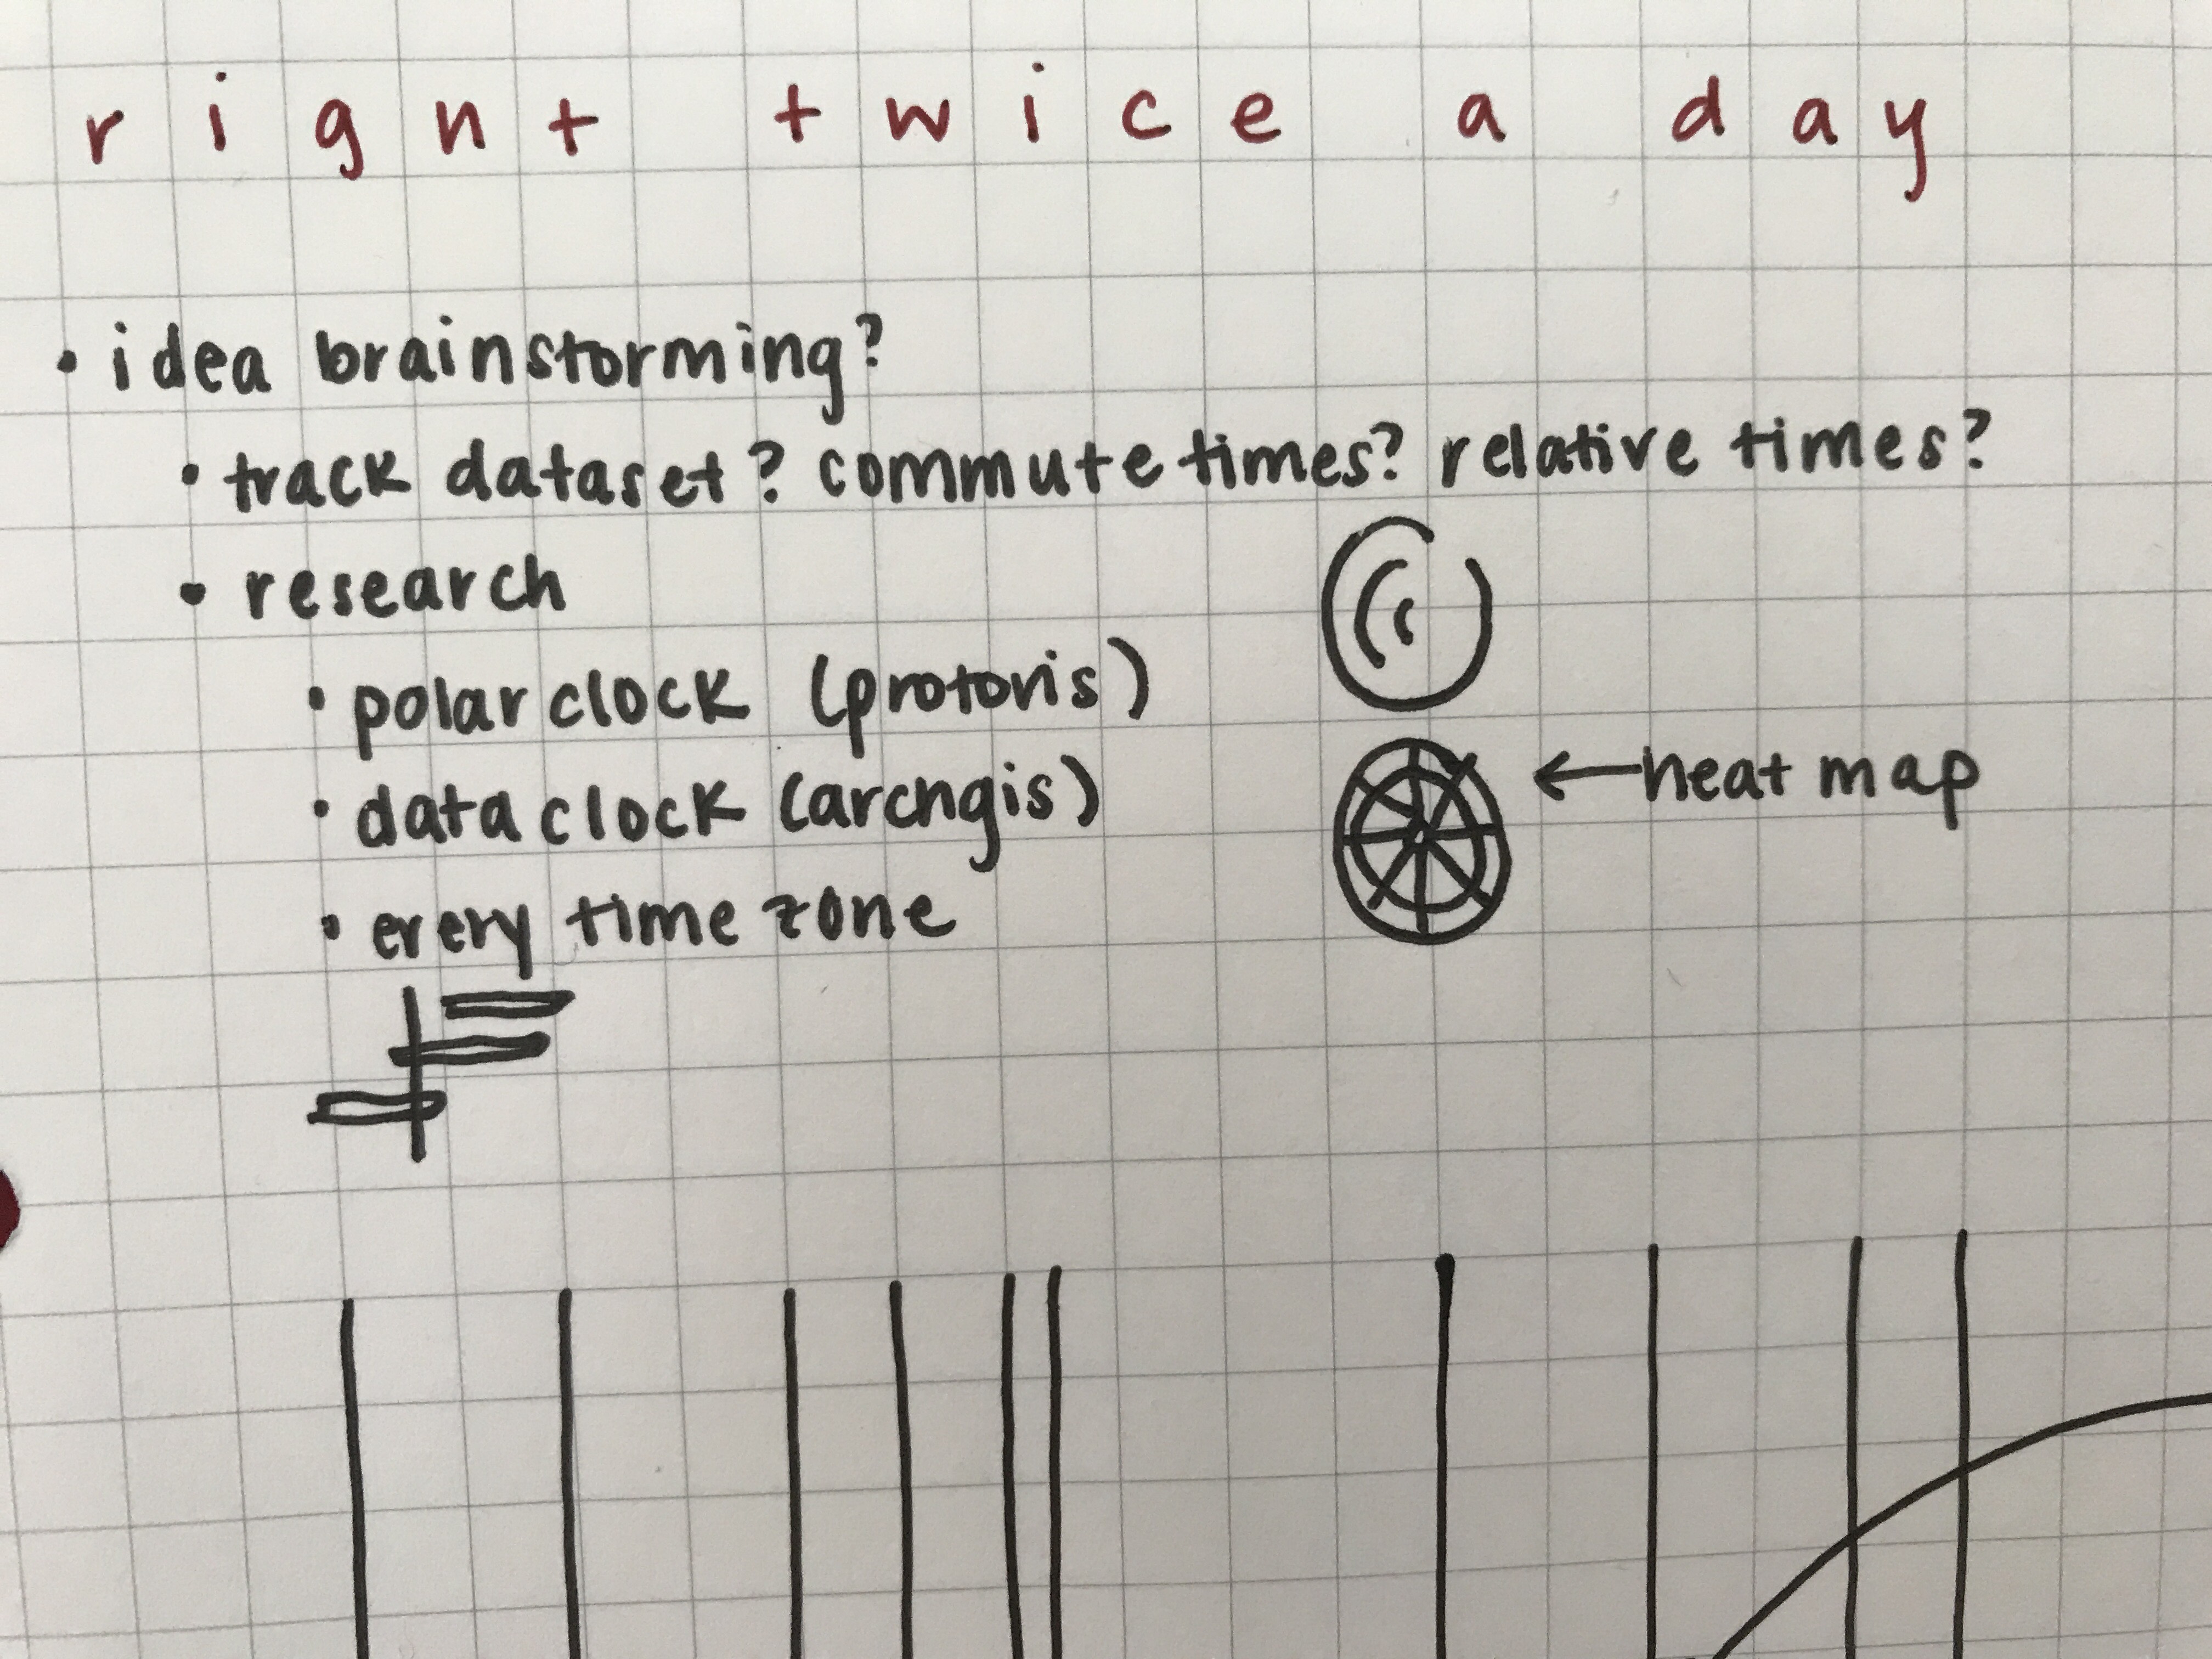 right twice a day
• idea brainstorming?
• track dataset? commute times? relative times?
• research
• polar clock (protovis)
• data clock (archgis)
← heat map
• every time zone